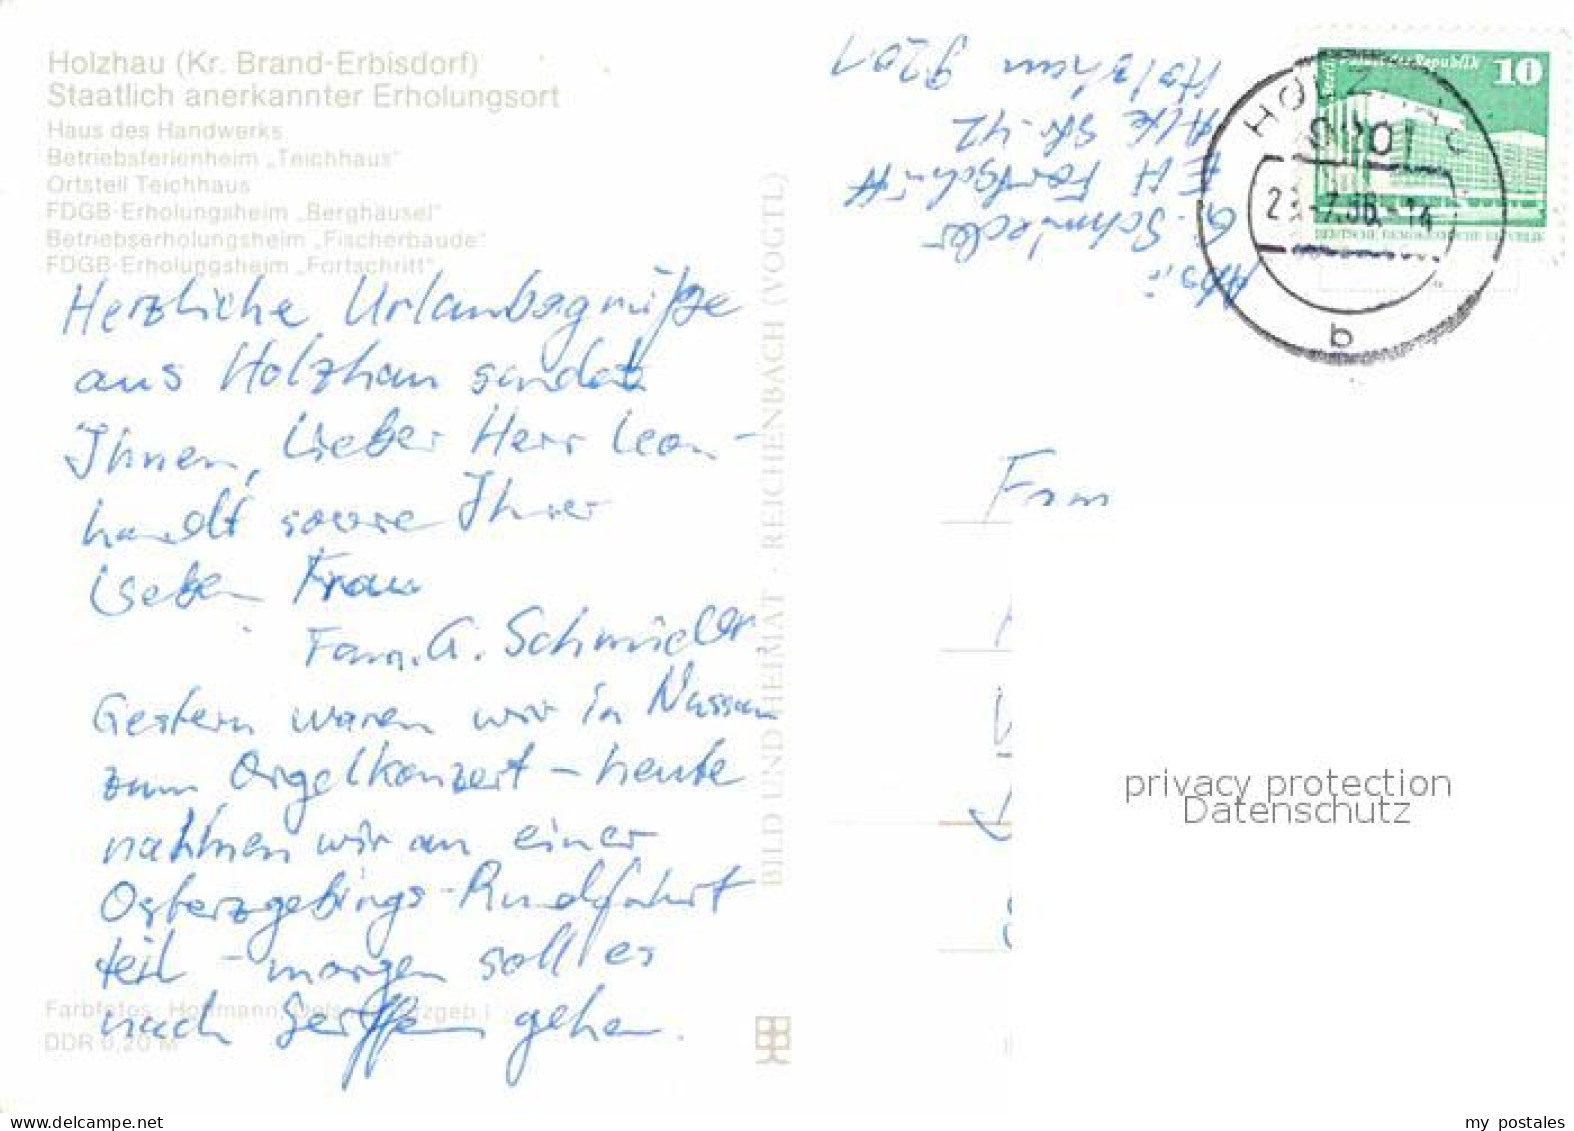 Holzhau (Kr. Brand-Erbisdorf)
Staatlich anerkannter Erholungsort
Haus des Handwerks
Betriebsferienheim „Teichhaus"
Ortsteil Teichhaus
FDGB-Erholungsheim „Berghäusel"
Betriebserholungsheim „Fischerbaude"
FDGB-Erholungsheim „Fortschritt"
Herzliche Urlaubsgrüße
aus Holzhau sendet
Ihnen, lieber Herr Leon-
hardt sowie Ihrer
lieben Frau
Fam. G. Schmieder
Gestern waren wir in Nassau
zum Orgelkonzert – heute
nahmen wir an einer
Osterzgebirgs-Rundfahrt
teil – morgen soll es
nach Seiffen gehen.
Farbfotos: Hoffmann,
DDR 0,20 M
BILD UND HEIMAT · REICHENBACH (VOGTL)
Abs.:
G. Schmieder
EH Fortschritt
Alte Str. 42
Holzhau 9201
Berlin Palast der Republik 10
DEUTSCHE DEMOKRATISCHE REPUBLIK
HOLZHAU
9201
23.-7.86.-14
b
Frau
privacy protection
Datenschutz
my postales